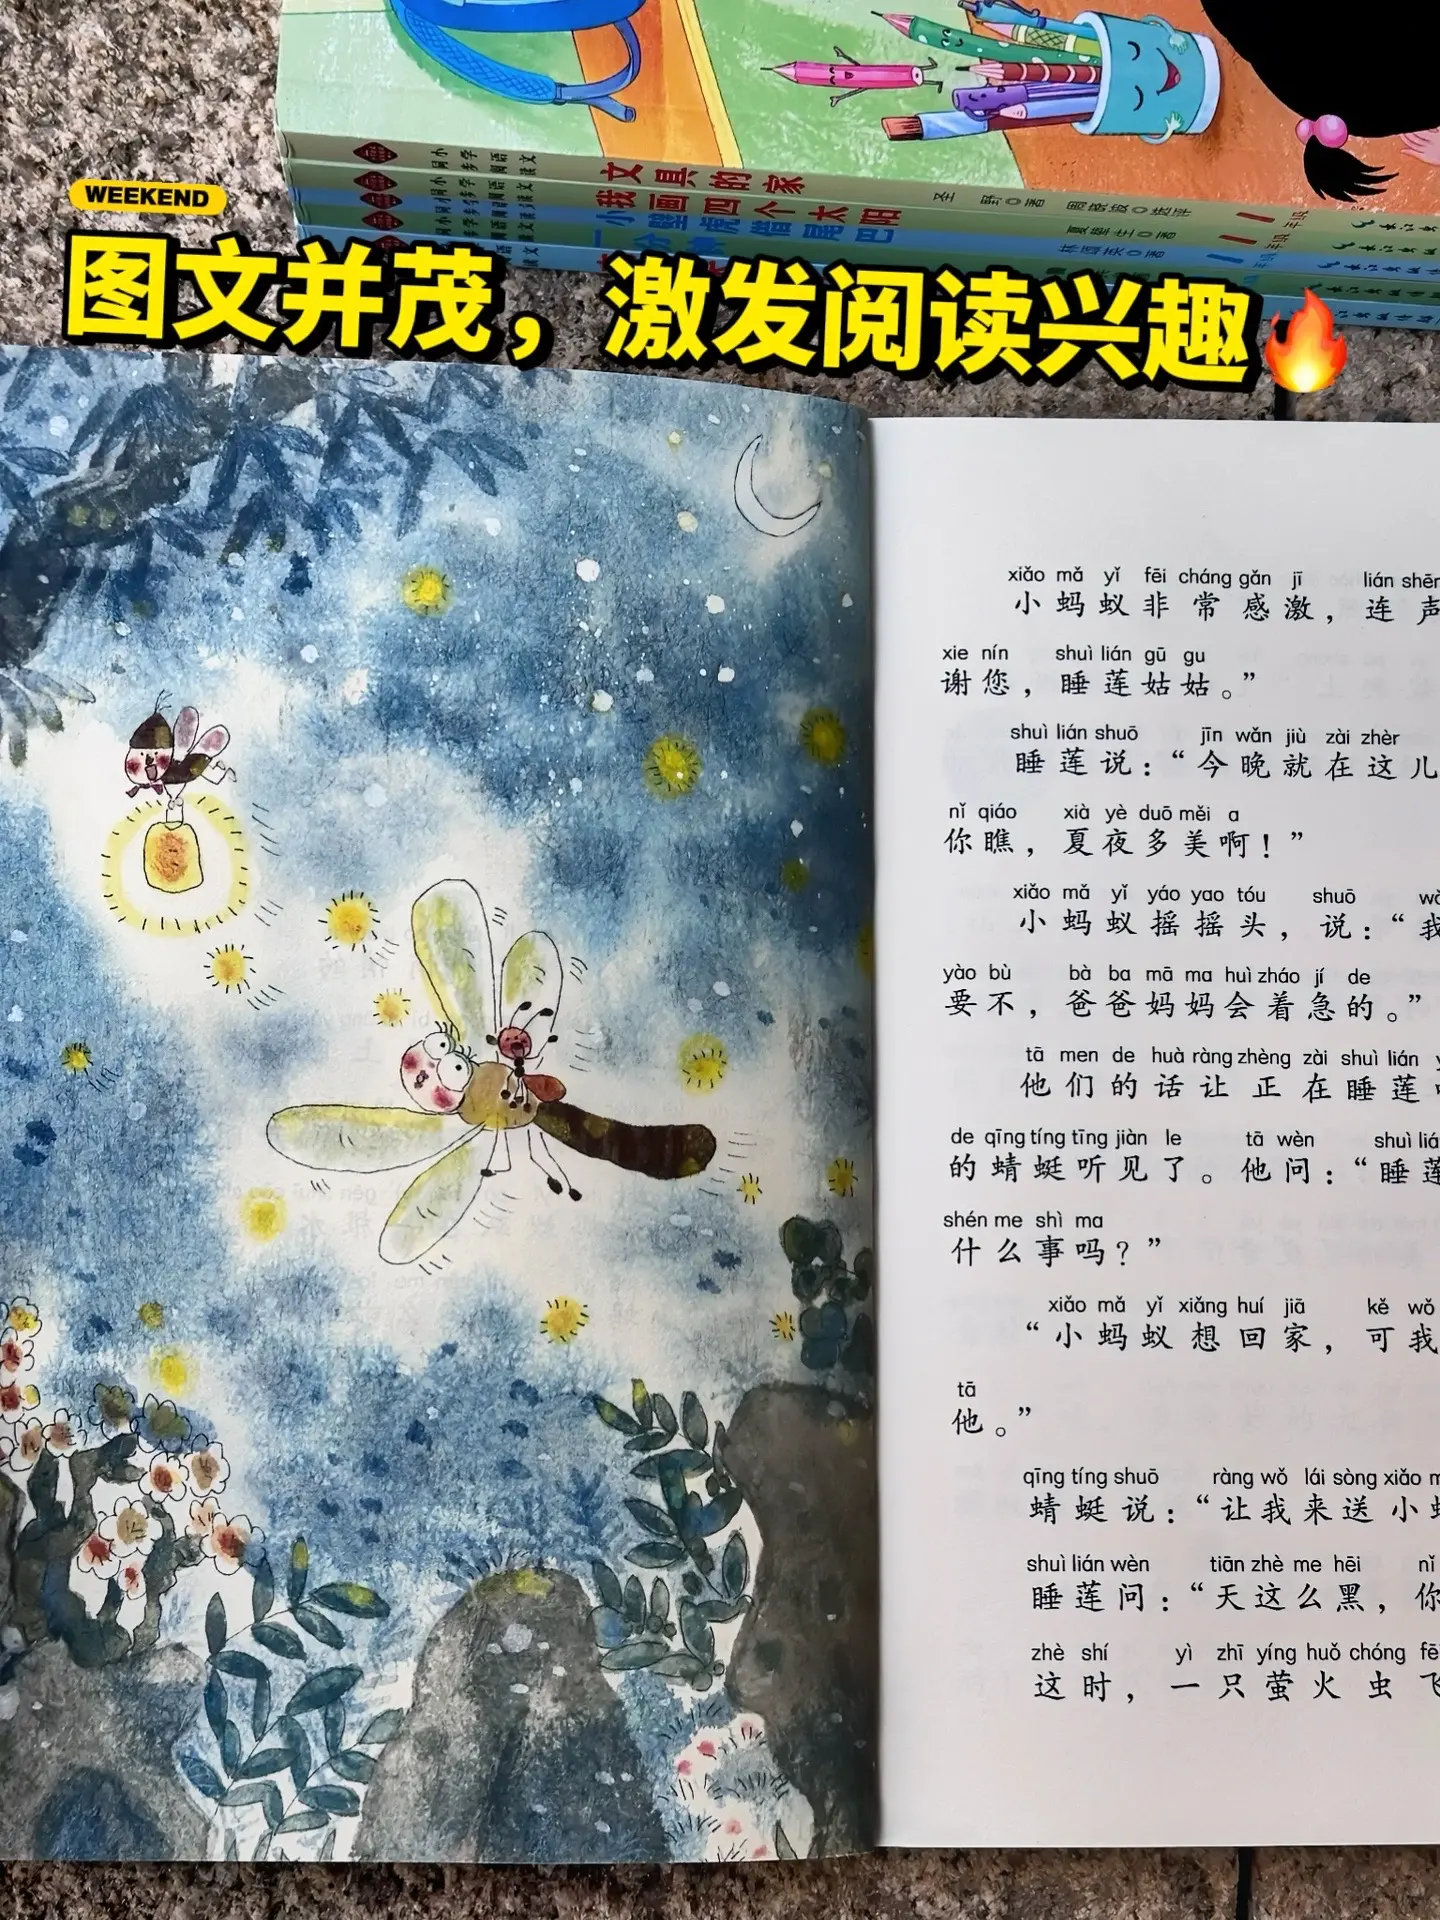 文具的家
我画四个太阳
小壁虎借尾巴
WEEKEND
图文并茂，激发阅读兴趣🔥
xiǎo mǎ yǐ fēi cháng gǎn jī lián shēn
小蚂蚁非常感激，连声
xie nín shuì lián gū gu
谢您，睡莲姑姑。”
shuì lián shuō jīn wǎn jiù zài zhèr
睡莲说：“今晚就在这儿
nǐ qiáo xià yè duō měi a
你瞧，夏夜多美啊！”
xiǎo mǎ yǐ yáo yao tóu shuō wǒ
小蚂蚁摇摇头，说：“我
yào bù bà ba mā ma huì zháo jí de
要不，爸爸妈妈会着急的。”
tā men de huà ràng zhèng zài shuì lián
他们的话让正在睡莲
de qīng tíng tīng jiàn le tā wèn shuì liá
的蜻蜓听见了。他问：“睡莲
shén me shì ma
什么事吗？”
xiǎo mǎ yǐ xiǎng huí jiā kě wǒ
“小蚂蚁想回家，可我
tā
他。”
qīng tíng shuō ràng wǒ lái sòng xiǎo m
蜻蜓说：“让我来送小蚂
shuì lián wèn tiān zhè me hēi nǐ
睡莲问：“天这么黑，你
zhè shí yì zhī yíng huǒ chóng fē
这时，一只萤火虫飞